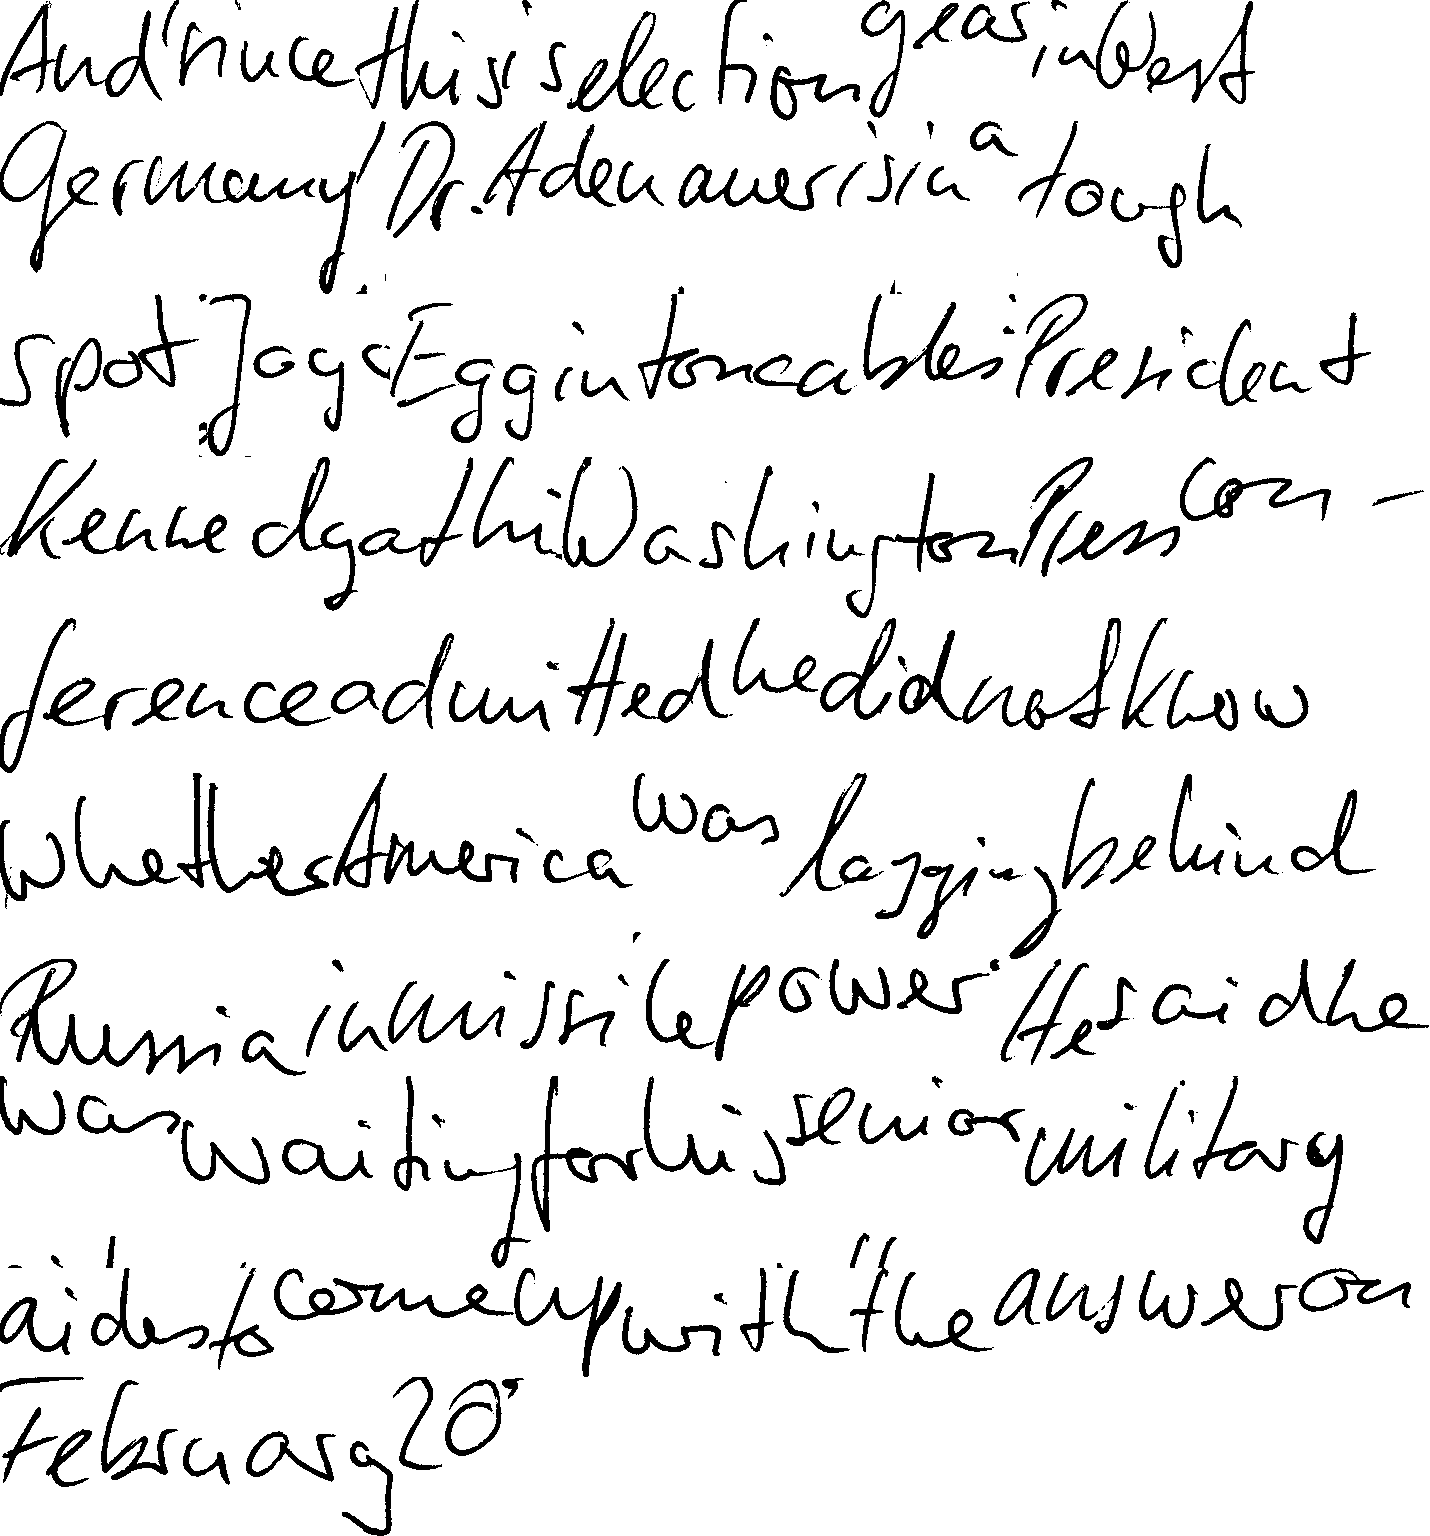 And since this is election year in West
Germany Dr. Adenauer is in a tough
spot. Joyce Egginton cables: President
Kennedy at his Washington Press con-
ference admitted he did not know
whether America was lagging behind
Russia in missile power. He said he
was waiting for his senior military
aides to come up with the answer on
February 20.